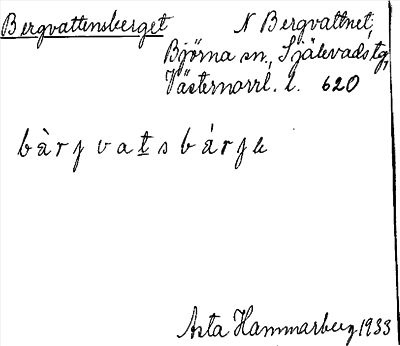 Bergvattensberget N Bergvattnet,
Björna sn, Själevads tg,
Västernorrl. l. 620
bàrjvatsbárje
Asta Hammarberg 1933